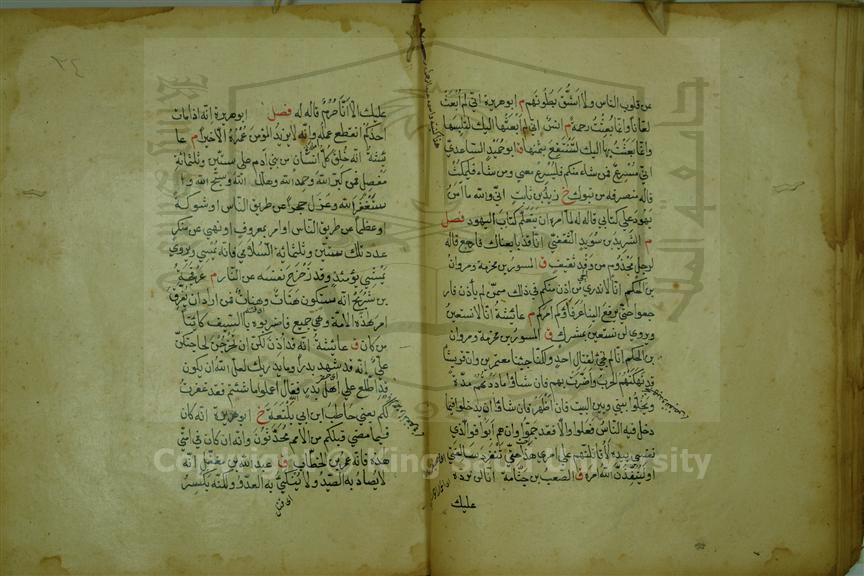 من قلوب الناس ولا اشق بطونهم م ابو هريرة اني لم ابعث
لعانا وانما بعثت رحمة م انس اني لم ابعثها اليك لتلبسها
وانما بعثت بها اليك لتنتفع بثمنها ق ابو حميد الساعدي
اني مسرع فمن شاء منكم فليسرع معي ومن شاء فليمكث
قاله منصرفه من تبوك خ زيد بن ثابت اني والله ما آمن
يهود على كتابي قاله له لما امره ان يتعلم كتاب اليهود فصل
م الشريد بن سويد الثقفي انا قد بايعناك فارجع قاله
لرجل مجذوم من وفد ثقيف ق المسور بن مخرمة ومروان
بن الحكم انا لا ندري من اذن منكم في ذلك ممن لم يأذن فار
جعوا حتى يرفع الينا عرفاؤكم امركم م عائشة انا لا نستعين
ويروى لن نستعين بمشرك ق المسور بن مخرمة ومروان
بن الحكم انا لم نجئ لقتال احد ولكنا جئنا معتمرين وان قريشا
قد نهكتهم الحرب واضرت بهم فان شاؤا ماددتهم مدة
ويخلوا بيني وبين البيت فان اظهر فان شاؤا ان يدخلوا فيما
دخل فيه الناس فعلوا والا فقد جموا وان هم ابوا فوالذي
نفسي بيده لأقاتلنهم على امري هذا حتى تنفرد سالفتي
او لينفذن الله امره ق الصعب بن جثامة انا لم نرده
عليك
عليك الا انا حرم قاله له فصل ابو هريرة انه اذا مات
احدكم انقطع عمله وانه لا يزيد المؤمن عمره الا خيرا م عا
ئشة انه خلق كل انسان من بني ادم على ستين وثلثمائة
مفصل فمن كبر الله وحمد الله وهلل الله وسبح الله وا
ستغفر الله وعزل حجرا عن طريق الناس او شوكة
او عظما عن طريق الناس او امر بمعروف او نهى عن منكر
عدد تلك الستين وثلثمائة السلامى فانه يمسي ويروى
يمشي يومئذ وقد زحزح نفسه عن النار م عرفجة
بن شريح انه ستكون هنات وهنات فمن اراد ان يفرق
امر هذه الامة وهي جميع فاضربوه بالسيف كائنا
من كان ق عائشة انه قد اذن لكن ان تخرجن لحاجتكن
علي انه قد شهد بدرا وما يدريك لعل الله ان يكون
قد اطلع على اهل بدر فقال اعملوا ما شئتم فقد غفرت
لكم يعني حاطب بن ابي بلتعة خ ابو هريرة انه كان
فيما مضى قبلكم من الامم محدثون وانه ان كان في امتي
هذه فانه عمر بن الخطاب ق عبد الله بن مغفل انه
لا يصاد به الصيد ولا ينكى به العدو ولكنه يكسر
Copyright © King Saud University